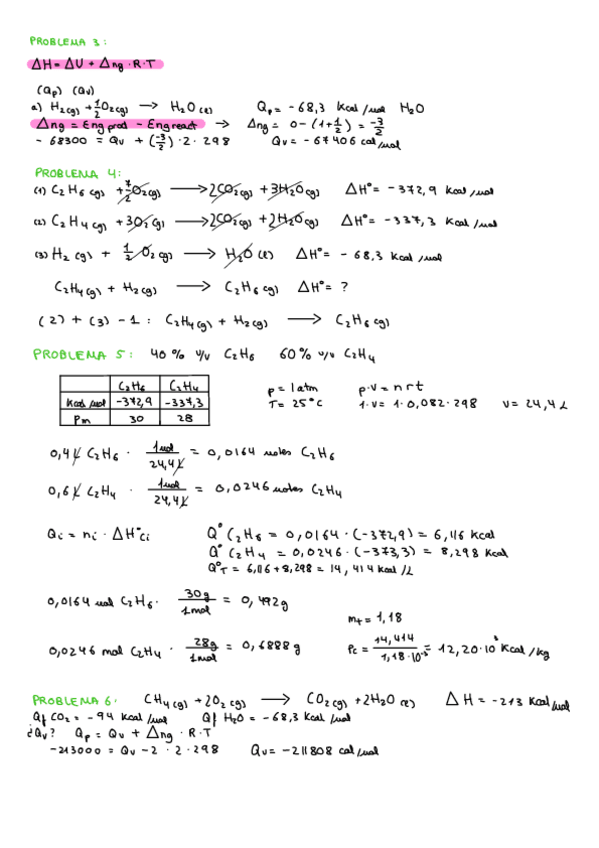 PROBLEMA 3:
ΔH = ΔU + Δng · R · T
(Qp) (Qv)
a) H2(g) + 1/2 O2(g) → H2O(l) Qp = -68,3 Kcal/mol H2O
Δng = Σng prod - Σng react → Δng = 0 - (1 + 1/2) = -3/2
- 68300 = Qv + (-3/2) · 2 · 298 Qv = -67406 cal/mol
PROBLEMA 4:
(1) C2H6(g) + 7/2 O2(g) → 2CO2(g) + 3H2O(g) ΔH° = -372,9 Kcal/mol
(2) C2H4(g) + 3O2(g) → 2CO2(g) + 2H2O(g) ΔH° = -337,3 Kcal/mol
(3) H2(g) + 1/2 O2(g) → H2O(l) ΔH° = -68,3 Kcal/mol
C2H4(g) + H2(g) → C2H6(g) ΔH° = ?
(2) + (3) - 1 : C2H4(g) + H2(g) → C2H6(g)
PROBLEMA 5: 40% v/v C2H6 60% v/v C2H4
C2H6 C2H4
Kcal/mol -372,9 -337,3
Pm 30 28
p = 1 atm p·v = n r t
T = 25°C 1·v = 1·0,082·298 v = 24,4 L
0,4 L C2H6 · 1mol/24,4 L = 0,0164 moles C2H6
0,6 L C2H4 · 1mol/24,4 L = 0,0246 moles C2H4
Qi = ni · ΔH°ci Q° C2H6 = 0,0164 · (-372,9) = 6,116 Kcal
Q° C2H4 = 0,0246 · (-373,3) = 8,298 Kcal
Q°T = 6,116 + 8,298 = 14,414 Kcal/L
0,0164 mol C2H6 · 30g/1mol = 0,492g
mt = 1,18
0,0246 mol C2H4 · 28g/1mol = 0,6888g
Pc = 14,414/1,18·10^-3 = 12,20·10³ Kcal/kg
PROBLEMA 6: CH4(g) + 2O2(g) → CO2(g) + 2H2O(l) ΔH = -213 Kcal/mol
Qf CO2 = -94 Kcal/mol Qf H2O = -68,3 Kcal/mol
¿Qv? Qp = Qv + Δng · R · T
-213000 = Qv - 2 · 2 · 298 Qv = -211808 cal/mol